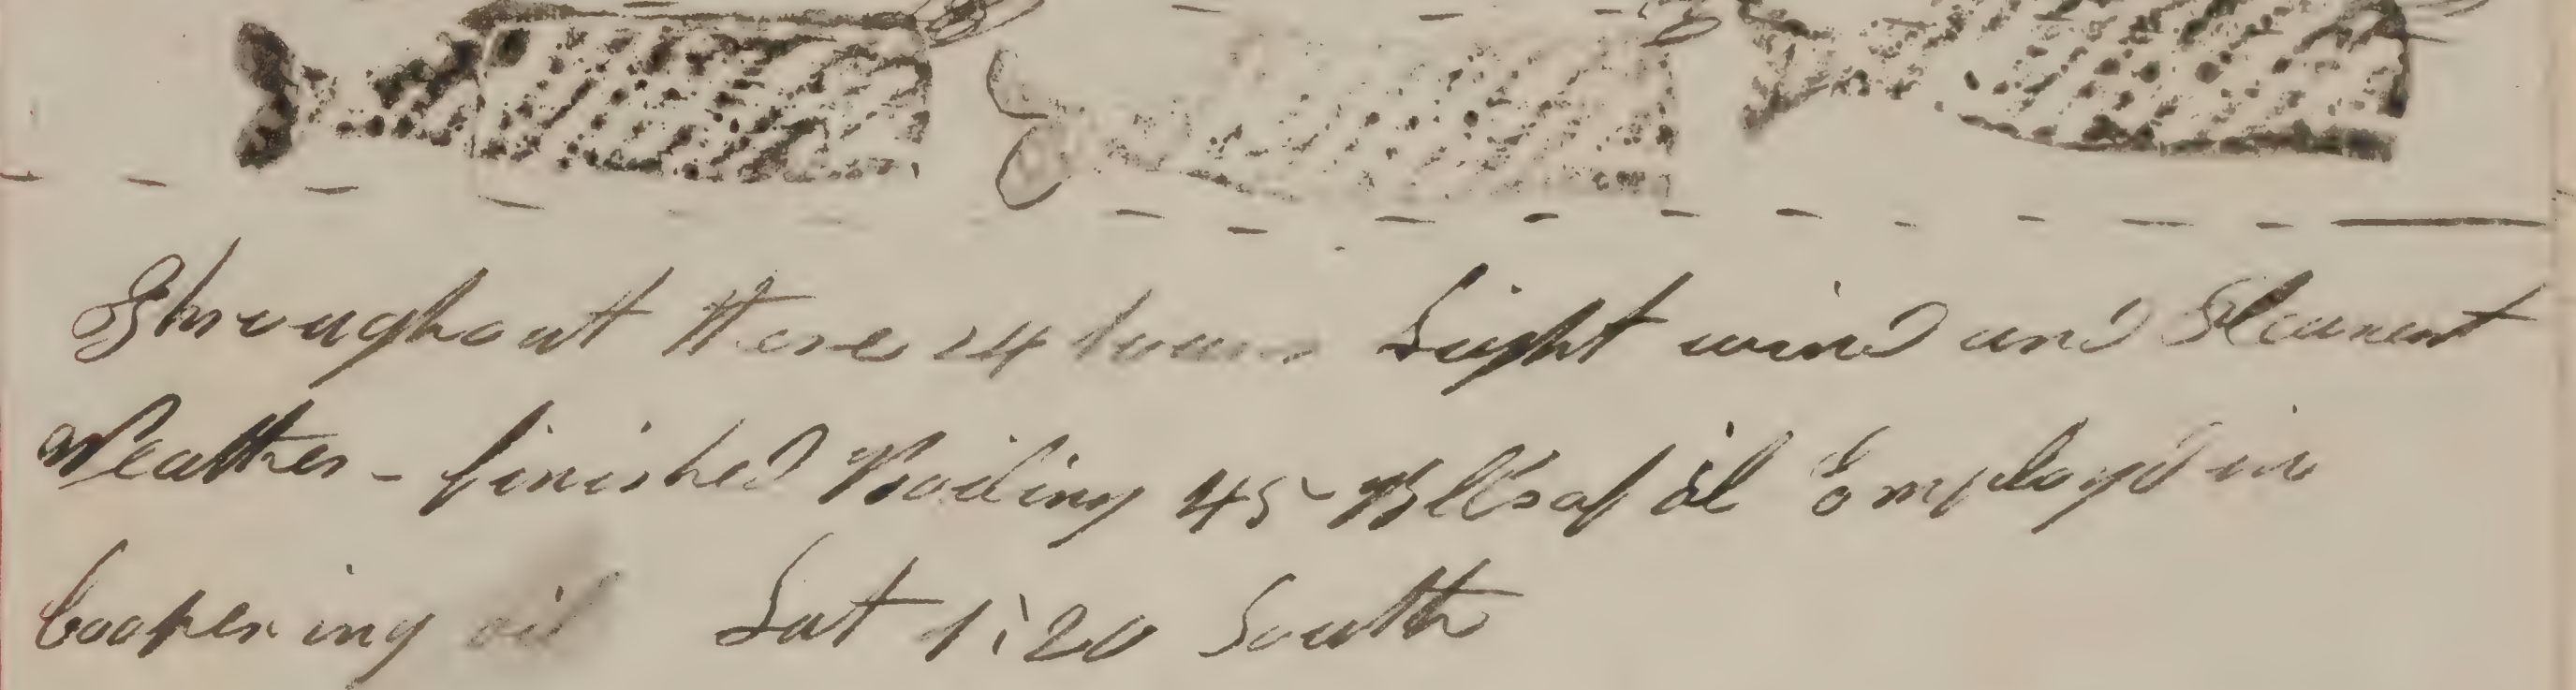 Throughout these 24 hours Light wind and Pleasent
Weather - finished Boiling 45 Blls of oil Employd in
Coopering oil Lat 1:20 South